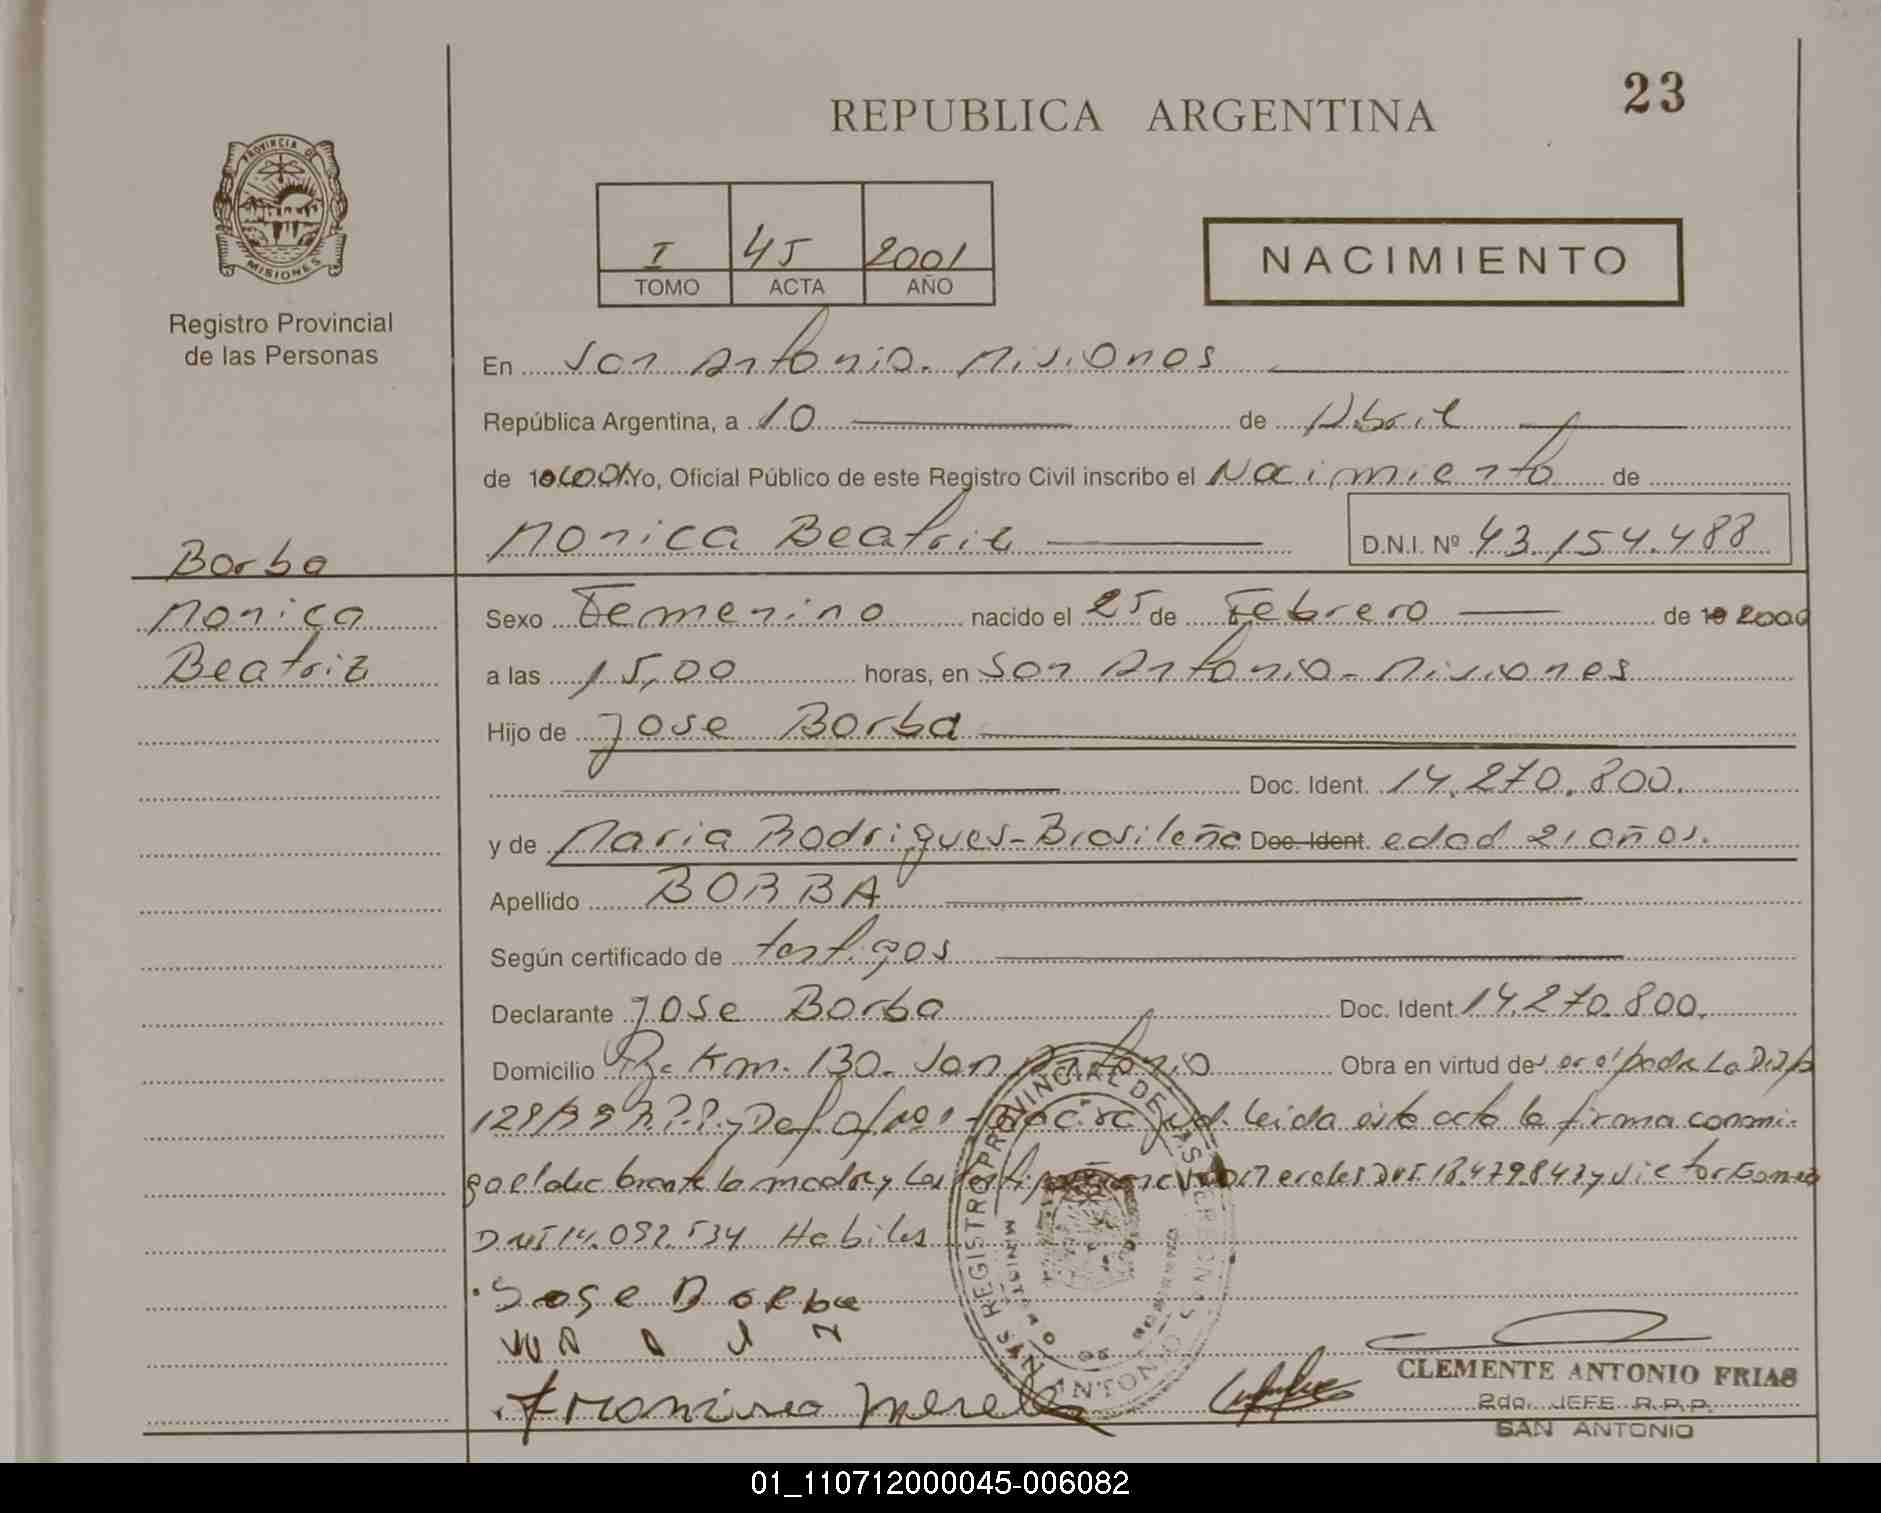 23
REPUBLICA ARGENTINA
PROVINCIA DE
MISIONES
Registro Provincial
de las Personas
I 45 2001
TOMO ACTA AÑO
NACIMIENTO
En San Antonio. Misiones
República Argentina, a 10 de Abril
de 2001 Yo, Oficial Público de este Registro Civil inscribo el Nacimiento de
Monica Beatriz D.N.I. Nº 43.154.488
Borba
Monica
Beatriz
Sexo Femenino nacido el 25 de Febrero de 19 2000
a las 15,00 horas, en San Antonio - Misiones
Hijo de Jose Borba
Doc. Ident. 14.270.800.
y de Maria Rodrigues - Brasileña Doc. Ident. edad 21 años.
Apellido BORBA
Según certificado de testigos
Declarante Jose Borba Doc. Ident 14.270.800.
Domicilio Km. 130. San Antonio Obra en virtud de
leida este acta la firma conmi-
go el declarante la madre y los DNI 18.479.842 y Victor Gomez
DNI 14.092.534 Habiles
Jose Borba
CLEMENTE ANTONIO FRIAS
2do. JEFE R.P.P.
SAN ANTONIO
01_110712000045-006082